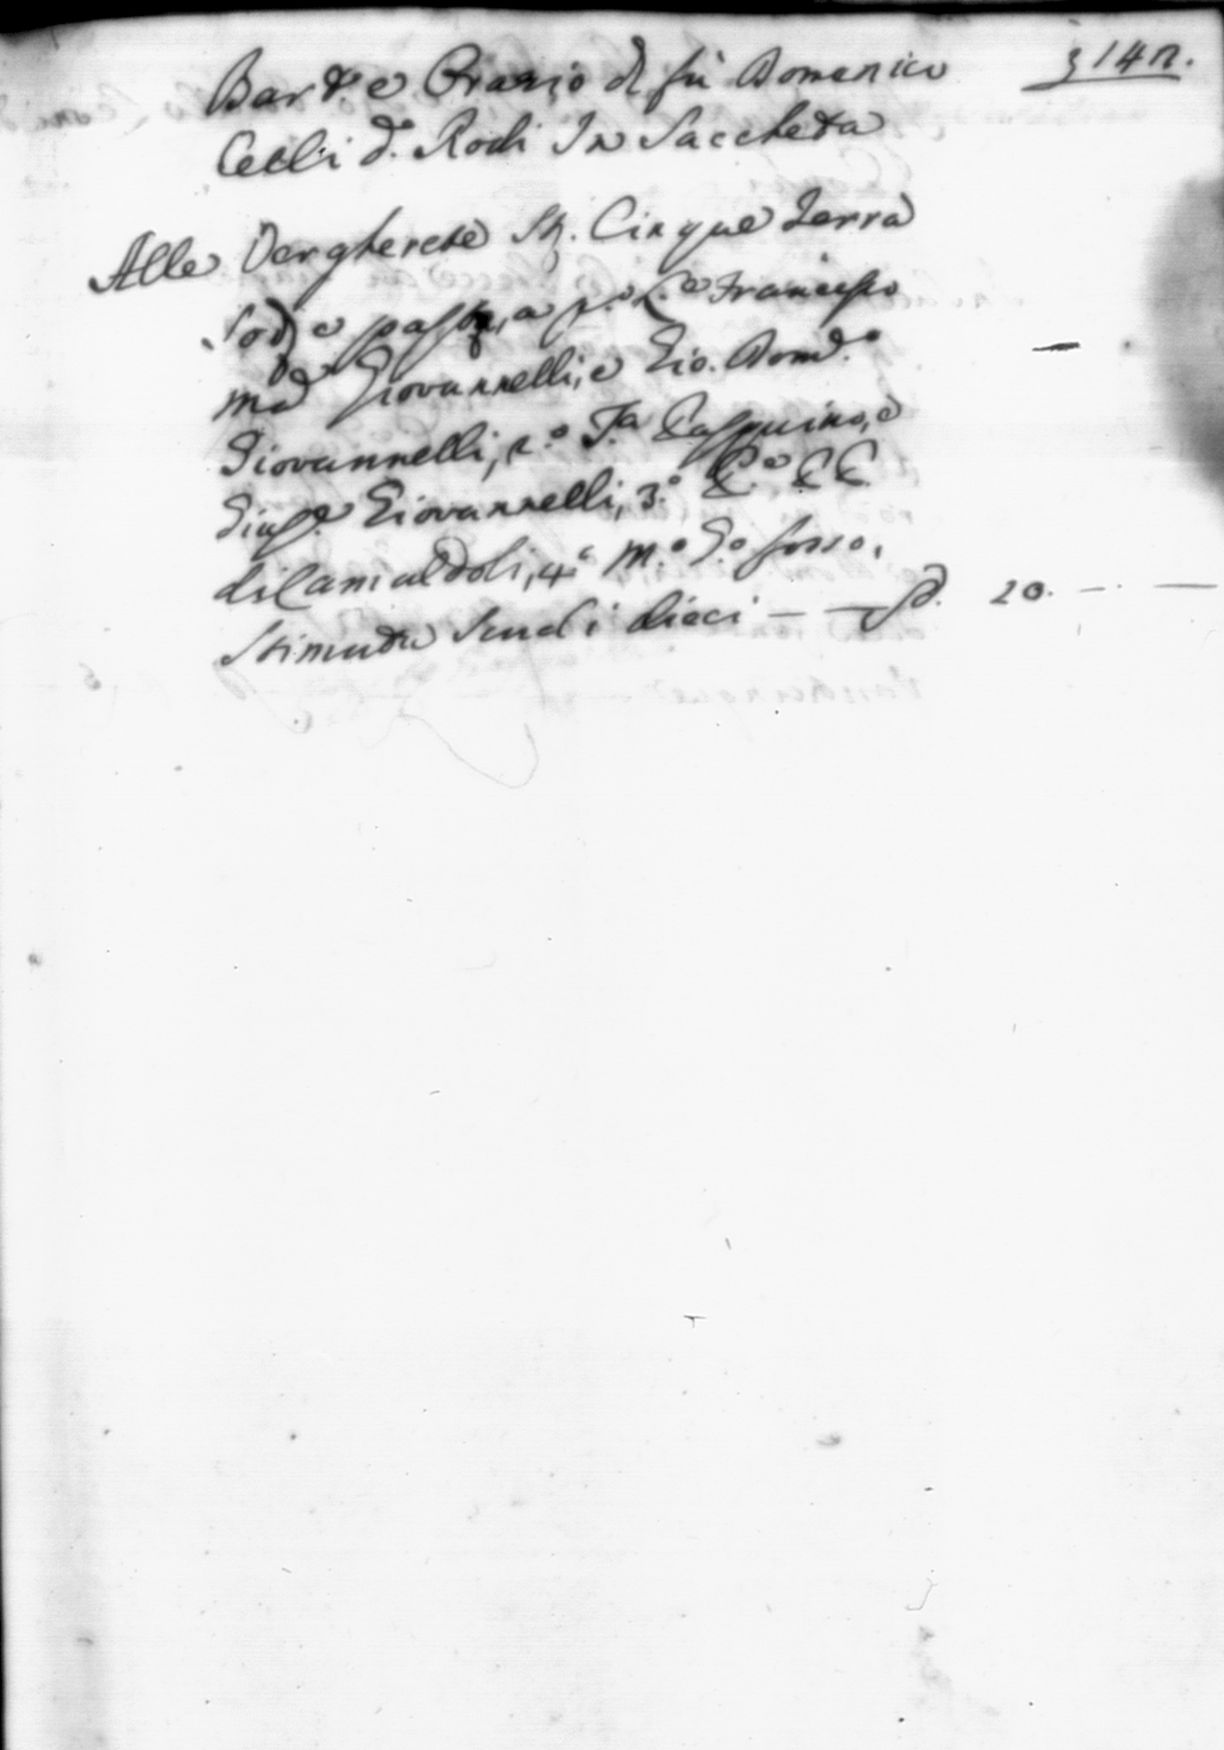 3142.
Bard.o e Orazio di fù Domenico
Cecchi d.o Rodi In Saccheta
Alle Vergherete St. Cinque Terra
Sod.a e past.a, a p.o L.o Francesco
M.a Giovannelli, e Gio. Dom.o
Giovannelli, 2.o T.a Pasquino, e
Gius.e Giovannelli, 3.o
di Camaldoli, 4.o M.o S.o fosso.
Stimata Scudi dieci — — 10. — —